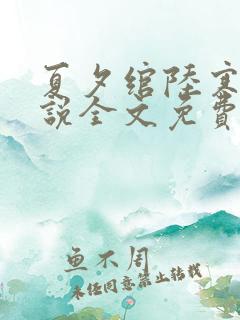 夏夕绾陆寒
说全文免费
鱼不周
未经同意禁止转载